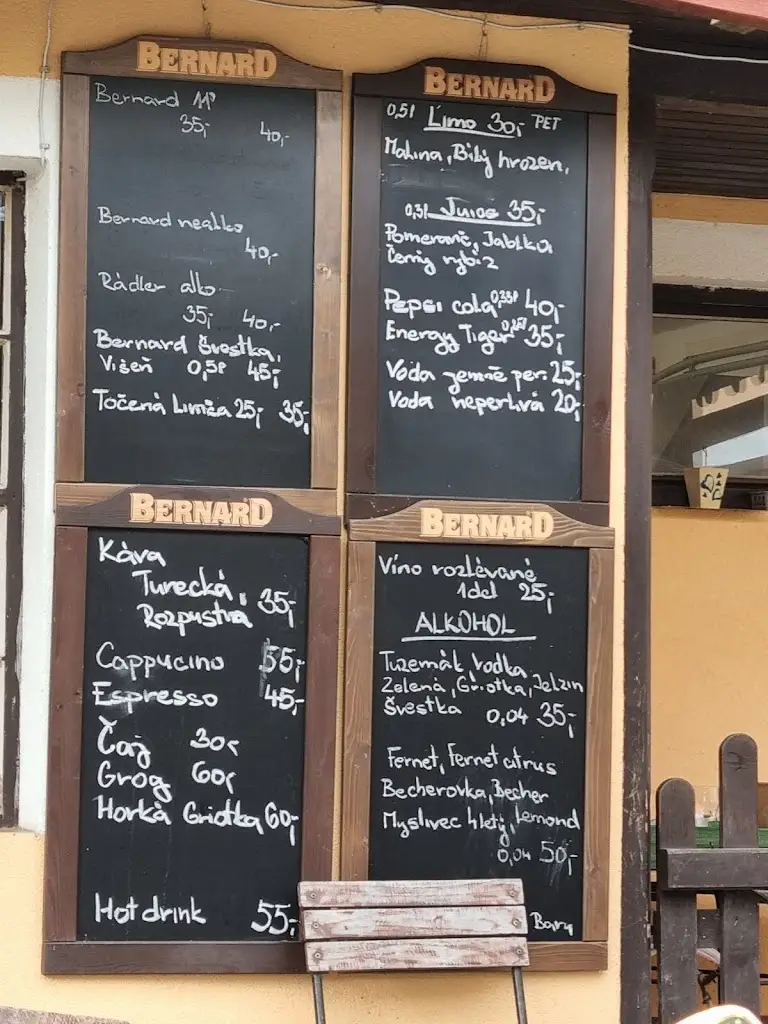 BERNARD
Bernard 11°
35,- 40,-
Bernard nealko
40,-
Rádler alko
35,- 40,-
Bernard švestka,
Višeň 0,5l 45,-
Točená Limča 25,- 35,-
BERNARD
0,5l Limo 30,- PET
Malina, Bílý hrozen,
0,3l Juice 35,-
Pomeranč, Jablko
Černý rybíz
Pepsi cola 0,33l 40,-
Energy Tiger 0,25l 35,-
Voda jemně per. 25,-
Voda neperlivá 20,-
BERNARD
Káva
Turecká,
Rozpustná 35,-
Cappucino 55,-
Espresso 45,-
Čaj 30,-
Grog 60,-
Horká Griotka 60,-
Hot drink 55,-
BERNARD
Víno rozlévané
1dcl 25,-
ALKOHOL
Tuzemák, Vodka
Zelená, Griotka, Jelzin
Švestka 0,04 35,-
Fernet, Fernet citrus
Becherovka, Becher
Myslivec 4letý, Lemond
0,04 50,-